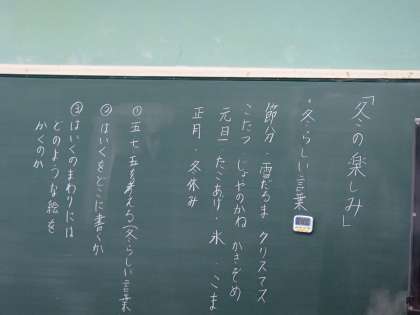 「冬の楽しみ」
・冬らしい言葉
節分 雪だるま クリスマス
こたつ じょやのかね かきぞめ
元日 たこあげ・氷 こま
正月・冬休み
① 五七五を考える(冬らしい言葉
② はいくをどこに書くか
③ はいくのまわりには
どのような絵を
かくのか